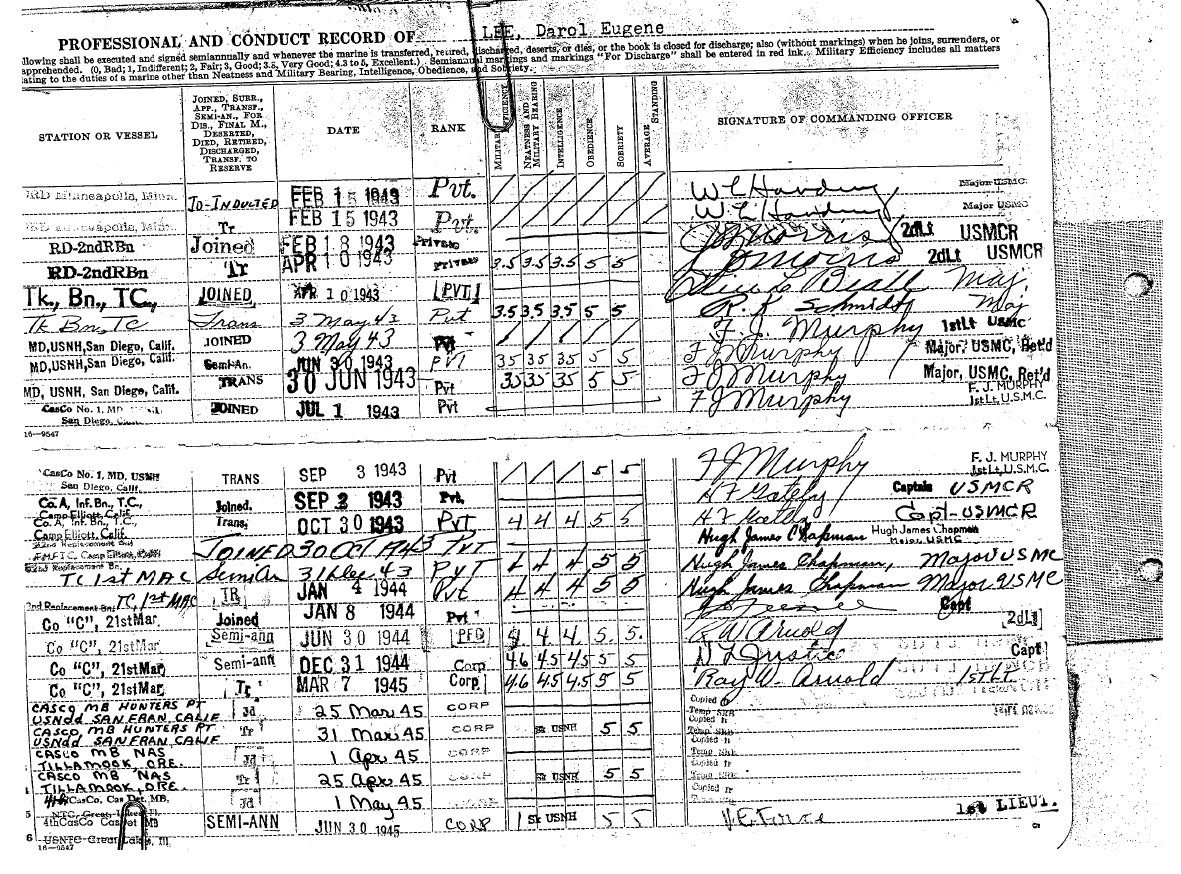 PROFESSIONAL AND CONDUCT RECORD OF LEE, Darol Eugene
llowing shall be executed and signed semiannually and whenever the marine is transferred, retired, discharged, deserts, or dies, or the book is closed for discharge; also (without markings) when he joins, surrenders, or
apprehended. (0, Bad; 1, Indifferent; 2, Fair; 3, Good; 3.5, Very Good; 4.3 to 5, Excellent.) Semiannual markings and markings "For Discharge" shall be entered in red ink. Military Efficiency includes all matters
lating to the duties of a marine other than Neatness and Military Bearing, Intelligence, Obedience, and Sobriety.
STATION OR VESSEL
JOINED, SURR., APP., TRANSF., SEMI-AN., FOR DIS., FINAL M., DESERTED, DIED, RETIRED, DISCHARGED, TRANSF. TO RESERVE
DATE
RANK
MILITARY EFFICIENCY
NEATNESS AND MILITARY BEARING
INTELLIGENCE
OBEDIENCE
SOBRIETY
AVERAGE STANDING
SIGNATURE OF COMMANDING OFFICER
Minneapolis, Minn. JD-INDUCTED FEB 15 1943 Pvt. / / / / / / W L Harding, Major USMC
Minneapolis, Minn. Tr FEB 15 1943 Pvt. / / / / / / W L Harding, Major USMC
RD-2ndRBn Joined FEB 18 1943 Private Morris 2dLt USMCR
RD-2ndRBn Tr APR 10 1943 Private 3.5 3.5 3.5 5 5 Morris 2dLt USMCR
Tk., Bn., TC, JOINED APR 10 1943 PVT Beall Maj.
Tk Bn, TC Trans 3 May 43 Pvt 3.5 3.5 3.5 5 5 R. K Schmidt Maj
MD, USNH, San Diego, Calif. JOINED 3 May 43 Pvt / / / / / F. J. Murphy 1stLt USMC
MD, USNH, San Diego, Calif. Semi-An. JUN 30 1943 PVT 35 35 35 5 5 F J Murphy Major, USMC, Ret'd
MD, USNH, San Diego, Calif. TRANS 30 JUN 1943 Pvt 35 35 35 5 5 F J Murphy Major, USMC, Ret'd
CasCo No. 1, MD San Diego, JOINED JUL 1 1943 Pvt F J Murphy F. J. MURPHY 1stLt, U.S.M.C.
16—9547
CasCo No. 1, MD, USNH San Diego, Calif. TRANS SEP 3 1943 Pvt / / / 5 5 F J Murphy F. J. MURPHY 1st Lt, U.S.M.C.
Co. A, Inf. Bn., T.C., Camp Elliott, Calif. Joined. SEP 1943 Pvt. H F Gately Captain USMCR
Co. A, Inf. Bn., T.C., Camp Elliott, Calif. Trans, OCT 30 1943 PVT 4 4 4 5 5 H F Gately Capt-USMCR
Replacement Bn Camp Elliott, JOINED 30 OCT 1943 PVT Hugh James Chapman Hugh James Chapman Major USMC
Replacement Bn. TC 1st MAC Semi An 31 Dec 43 PVT 4 4 4 5 5 Hugh James Chapman, Major USMC
Replacement Bn. TC, 1st MAC TR JAN 4 1944 Pvt 4 4 4 5 5 Hugh James Chapman Major USMC
Co "C", 21stMar Joined JAN 8 1944 Pvt Capt
Co "C", 21stMar Semi-ann JUN 30 1944 PFC 4 4. 4. 5. 5. R W Arnold 2dLt
Co "C", 21stMar, Semi-ann DEC 31 1944 Corp 4.6 4.5 4.5 5 5 Justice Capt
Co "C", 21stMar, Tr MAR 7 1945 Corp 4.6 4.5 4.5 5 5 Ray W. Arnold 1stLt
CASCO MB HUNTERS PT USNdd SAN FRAN CALIF Jd 25 Mar 45 CORP Copied fr Temp SRB
CASCO MB HUNTERS PT USNdd SAN FRAN CALIF Tr 31 Mar 45 CORP Sk USNH 5 5 Copied fr Temp SRB
CASCO MB NAS TILLAMOOK, ORE. Jd 1 Apr 45 CORP Copied fr Temp SRB
CASCO MB NAS TILLAMOOK, ORE. Tr 25 Apr 45 Sk USNH 5 5 Copied fr Temp SRB
4th CasCo, Cas Det, MB, Jd 1 May 45 Copied fr
5 4thCasCo Cas Det MB
6 USNTC Great Lakes, Ill SEMI-ANN JUN 30 1945 CORP Sk USNH 5 5 1st LIEUT.
16—9547